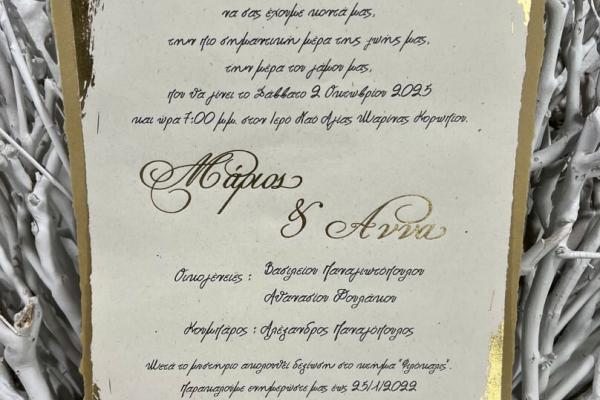 να σας έχουμε κοντά μας,
την πιο σημαντική μέρα της ζωής μας,
την μέρα του γάμου μας,
που θα γίνει το Σάββατο 2 Οκτωβρίου 2025
και ώρα 7:00 μμ. στον Ιερό Ναό Αγίας Μαρίνας Κορωπίου.
Μάριος
& Άννα
Οικογένειες : Βασιλείου Παναγιωτόπουλου
Αθανασίου Φουλάκιου
Κουμπάρος : Αλέξανδρος Παναγόπουλος
Μετά το μυστήριο ακολουθεί δεξίωση στο κτήμα "Φιλόκαλις".
Παρακαλούμε ενημερώστε μας έως 25/1/2022